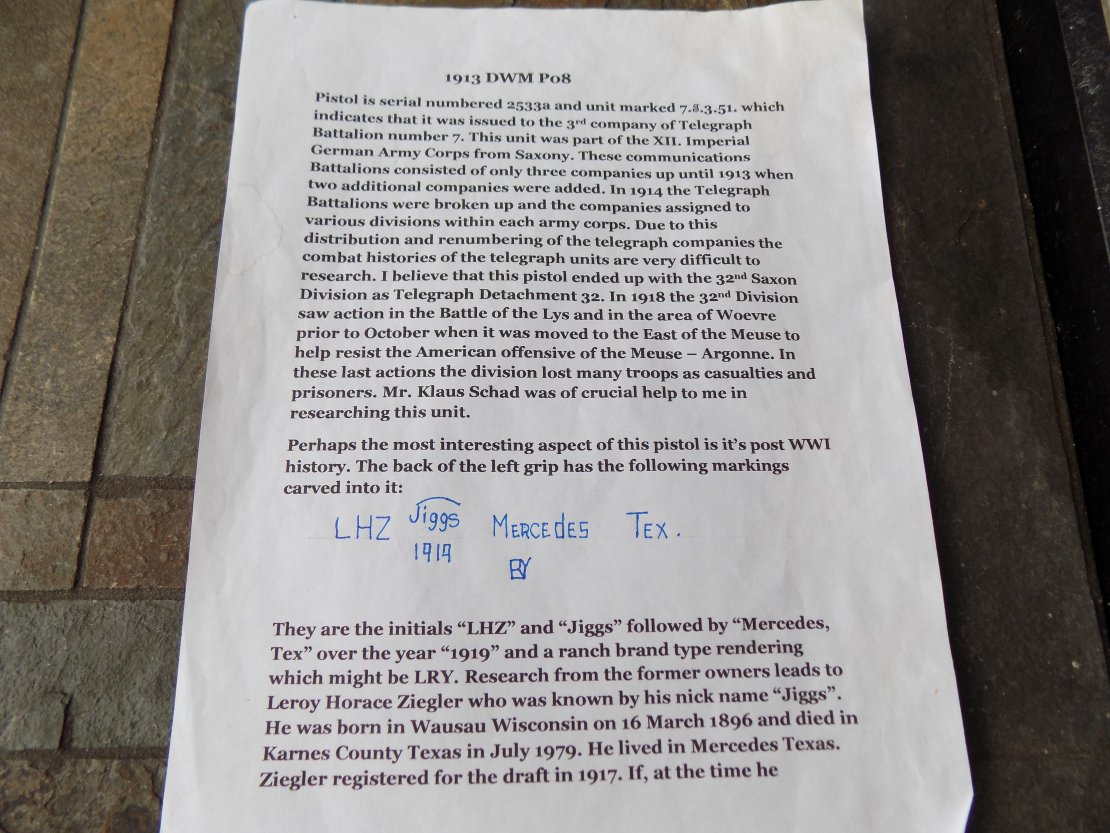 1913 DWM P08
Pistol is serial numbered 2533a and unit marked 7.8.3.51. which
indicates that it was issued to the 3rd company of Telegraph
Battalion number 7. This unit was part of the XII. Imperial
German Army Corps from Saxony. These communications
Battalions consisted of only three companies up until 1913 when
two additional companies were added. In 1914 the Telegraph
Battalions were broken up and the companies assigned to
various divisions within each army corps. Due to this
distribution and renumbering of the telegraph companies the
combat histories of the telegraph units are very difficult to
research. I believe that this pistol ended up with the 32nd Saxon
Division as Telegraph Detachment 32. In 1918 the 32nd Division
saw action in the Battle of the Lys and in the area of Woevre
prior to October when it was moved to the East of the Meuse to
help resist the American offensive of the Meuse – Argonne. In
these last actions the division lost many troops as casualties and
prisoners. Mr. Klaus Schad was of crucial help to me in
researching this unit.
Perhaps the most interesting aspect of this pistol is it's post WWI
history. The back of the left grip has the following markings
carved into it:
LHZ Jiggs MERCEdES TEX.
1919
They are the initials “LHZ” and “Jiggs” followed by “Mercedes,
Tex” over the year “1919” and a ranch brand type rendering
which might be LRY. Research from the former owners leads to
Leroy Horace Ziegler who was known by his nick name “Jiggs”.
He was born in Wausau Wisconsin on 16 March 1896 and died in
Karnes County Texas in July 1979. He lived in Mercedes Texas.
Ziegler registered for the draft in 1917. If, at the time he